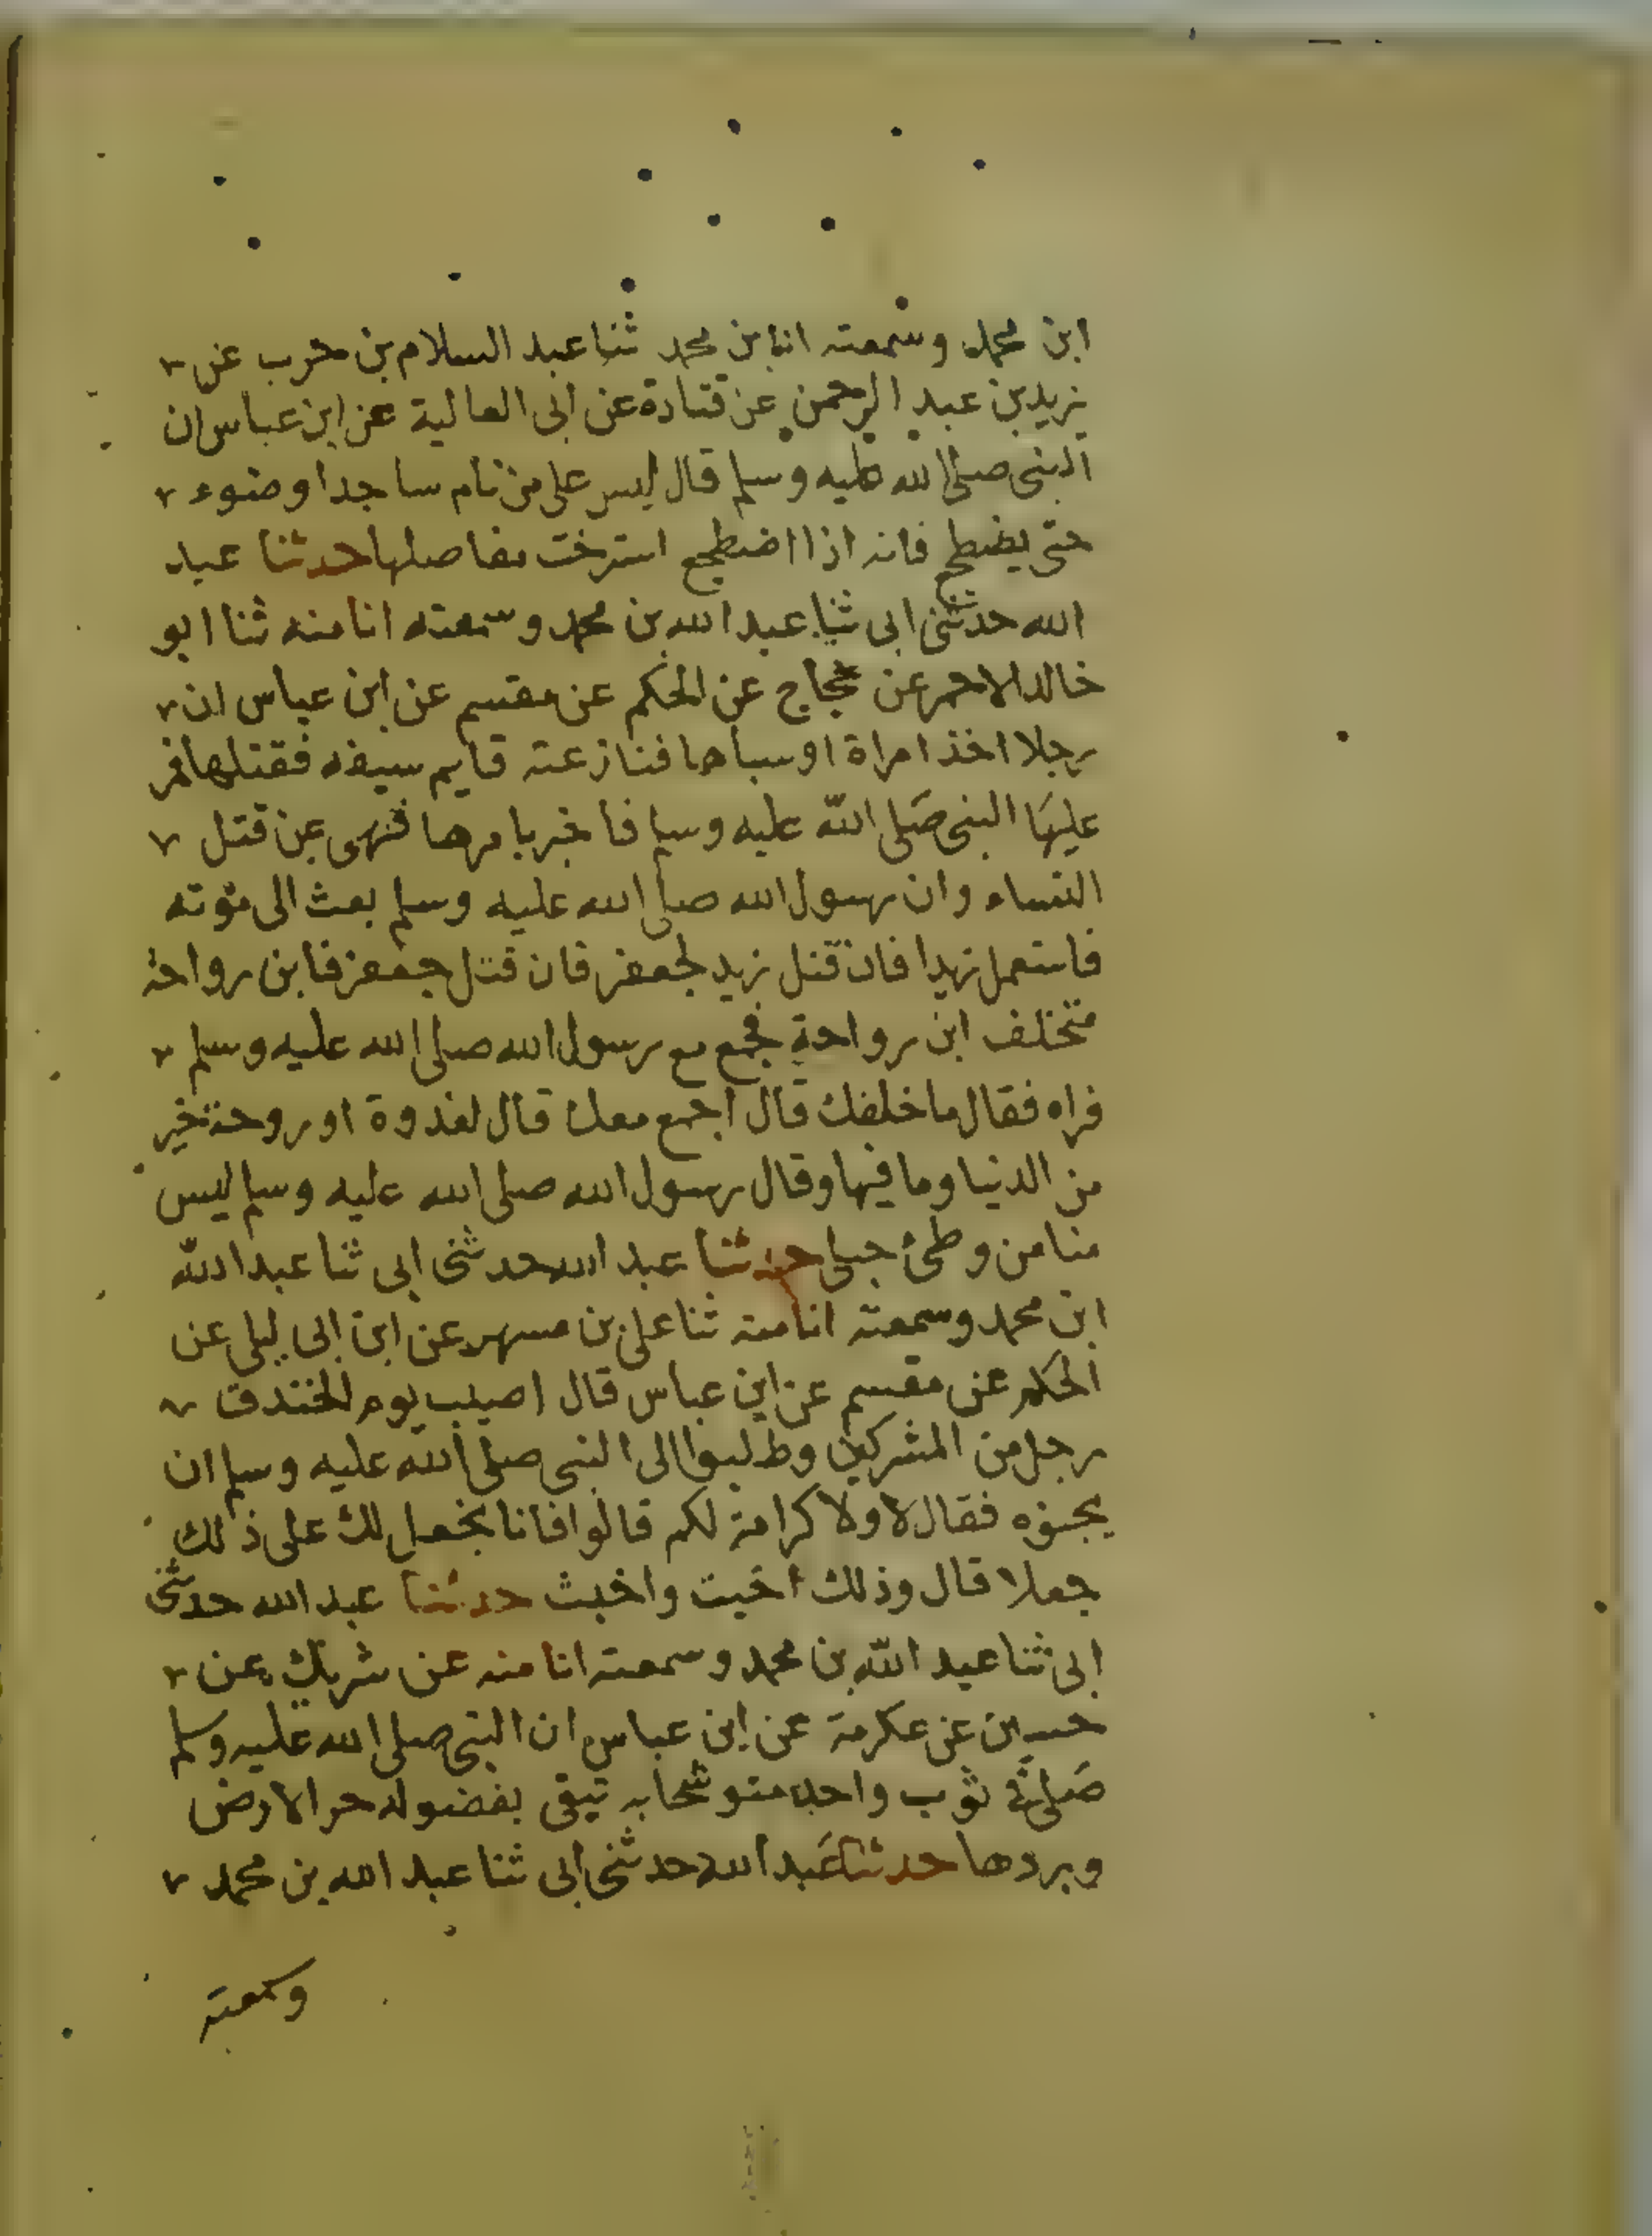 ابن محمد وسمعته انا بن محمد ثنا عبد السلام بن حرب عن
يزيد بن عبد الرحمن عن قتادة عن ابى العالية عن ابن عباس ان
النبى صلى الله عليه وسلم قال ليس على من نام ساجدا وضوء
حتى يضطجع فانه اذا اضطجع استرخت مفاصلها حدثنا عبد
الله حدثنى ابى ثنا عبد الله بن محمد وسمعته انا منه ثنا ابو
خالد الاحمر عن حجاج عن الحكم عن مقسم عن ابن عباس ان
رجلا اخذ امراة او سباها فنازعته قايم سيفه فقتلها فمر
عليها النبى صلى الله عليه وسلم فاخبر بامرها فنهى عن قتل
النساء وان رسول الله صلى الله عليه وسلم بعث الى موته
فاستعمل زيدا فان قتل زيد لجعفر فان قتل جعفر فابن رواحة
فتخلف ابن رواحة فجمع مع رسول الله صلى الله عليه وسلم
فراه فقال ما خلفك قال اجمع معك قال لغدوة او روحة خير
من الدنيا وما فيها وقال رسول الله صلى الله عليه وسلم ليس
منا من وطئ حبلى حدثنا عبد الله حدثنى ابى ثنا عبد الله
ابن محمد وسمعته انا منه ثنا على بن مسهر عن ابن ابى ليلى عن
الحكم عن مقسم عن ابن عباس قال اصيب يوم الخندق
رجل من المشركين وطلبوا الى النبى صلى الله عليه وسلم ان
يجنوه فقال لا ولا كرامة لكم قالوا فانا نجعل لك على ذلك
جعلا قال وذلك اخبث واخبث حدثنا عبد الله حدثنى
ابى ثنا عبد الله بن محمد وسمعته انا منه عن شريك عن
حسين عن عكرمة عن ابن عباس ان النبى صلى الله عليه وسلم
صلى فى ثوب واحد متوشحا به يتقى بفضوله حر الارض
وبردها حدثنا عبد الله حدثنى ابى ثنا عبد الله بن محمد
وسمعته